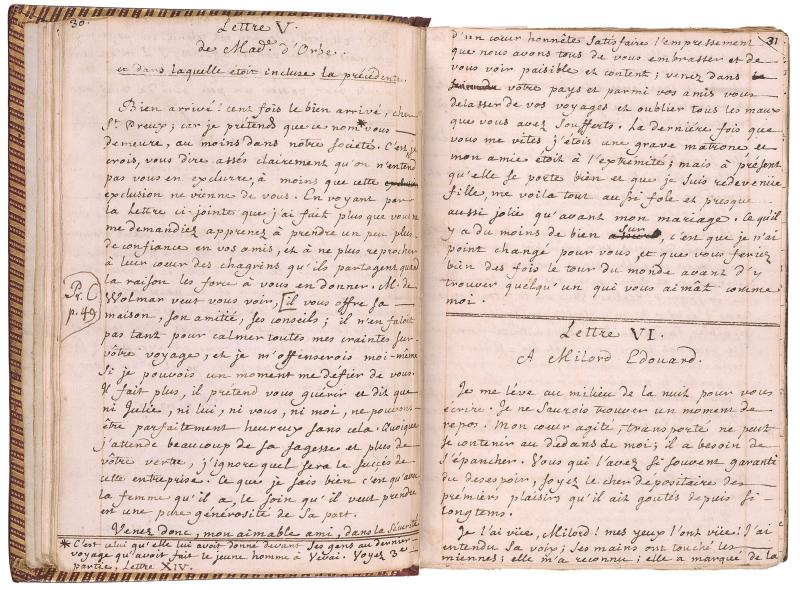 30.
Lettre V.
de Made. d'Orbe.
et dans laquelle étoit incluse la précédente.
Bien arrivé! cent fois le bien arrivé, cher
St. Preux; car je prétends que ce nom* vous
demeure, au moins dans nôtre societé. C'est, je
crois, vous dire assés clairement qu'on n'entend
pas vous en exclurre, à moins que cette
exclusion ne vienne de vous. En voyant par
la Lettre ci-jointe que j'ai fait plus que vous ne
me demandiez apprenez à prendre un peu plus
de confiance en vos amis, et à ne plus reprocher
à leur cœur des chagrins qu'ils partagent quand
la raison les force à vous en donner. M. de
Wolmar veut vous voir, [il vous offre sa
maison, son amitié, ses conseils; il n'en faloit
pas tant pour calmer toutes mes craintes sur
vôtre voyage, et je m'offenserois moi-même
si je pouvois un moment me défier de vous.
Il fait plus, il prétend vous guérir et dit que
ni Julie, ni lui, ni vous, ni moi, ne pouvons
être parfaitement heureux sans cela. Quoique
j'attende beaucoup de sa sagesse et plus de
vôtre vertu, j'ignore quel sera le succès de
cette entreprise. Ce que je sais bien c'est qu'avec
la femme qu'il a, le soin qu'il veut prendre
est une pure générosité de sa part.
Venez donc, mon aimable ami, dans la sécurité
* C'est celui qu'elle lui avoit donné devant ses gens au dernier
voyage qu'avoit fait le jeune homme à Vevai. Voyez 3e
partie, Lettre XIV.
Pr. C
p. 49
31
d'un cœur honnête satisfaire l'empressement
que nous avons tous de vous embrasser et de
vous voir paisible et content; venez dans
votre pays et parmi vos amis vous
delasser de vos voyages et oublier tous les maux
que vous avez soufferts. La derniére fois que
vous me vites j'étois une grave matrone et
mon amie étoit à l'extremité; mais à présent
qu'elle se porte bien et que je suis redevenüe
fille, me voila tout aussi fole et presque
aussi jolie qu'avant mon mariage. Ce qu'il
y a du moins de bien sur, c'est que je n'ai
point changé pour vous, et que vous feriez
bien des fois le tour du monde avant d'y
trouver quelqu'un qui vous aimât comme
moi.
Lettre VI.
A Milord Edouard.
Je me léve au milieu de la nuit pour vous
écrire. Je ne saurois trouver un moment de
repos. Mon cœur agité, transporté ne peut
se contenir au dedans de moi; il a besoin de
s'épancher. Vous qui l'avez si souvent garanti
du desespoir, soyez le cher dépositaire des
prémiers plaisirs qu'il ait goutés depuis si
longtems.
Je l'ai vüe, Milord! mes yeux l'ont vüe! J'ai
entendu sa voix; ses mains ont touché les
miennes; elle m'a reconnu; elle a marqué de la